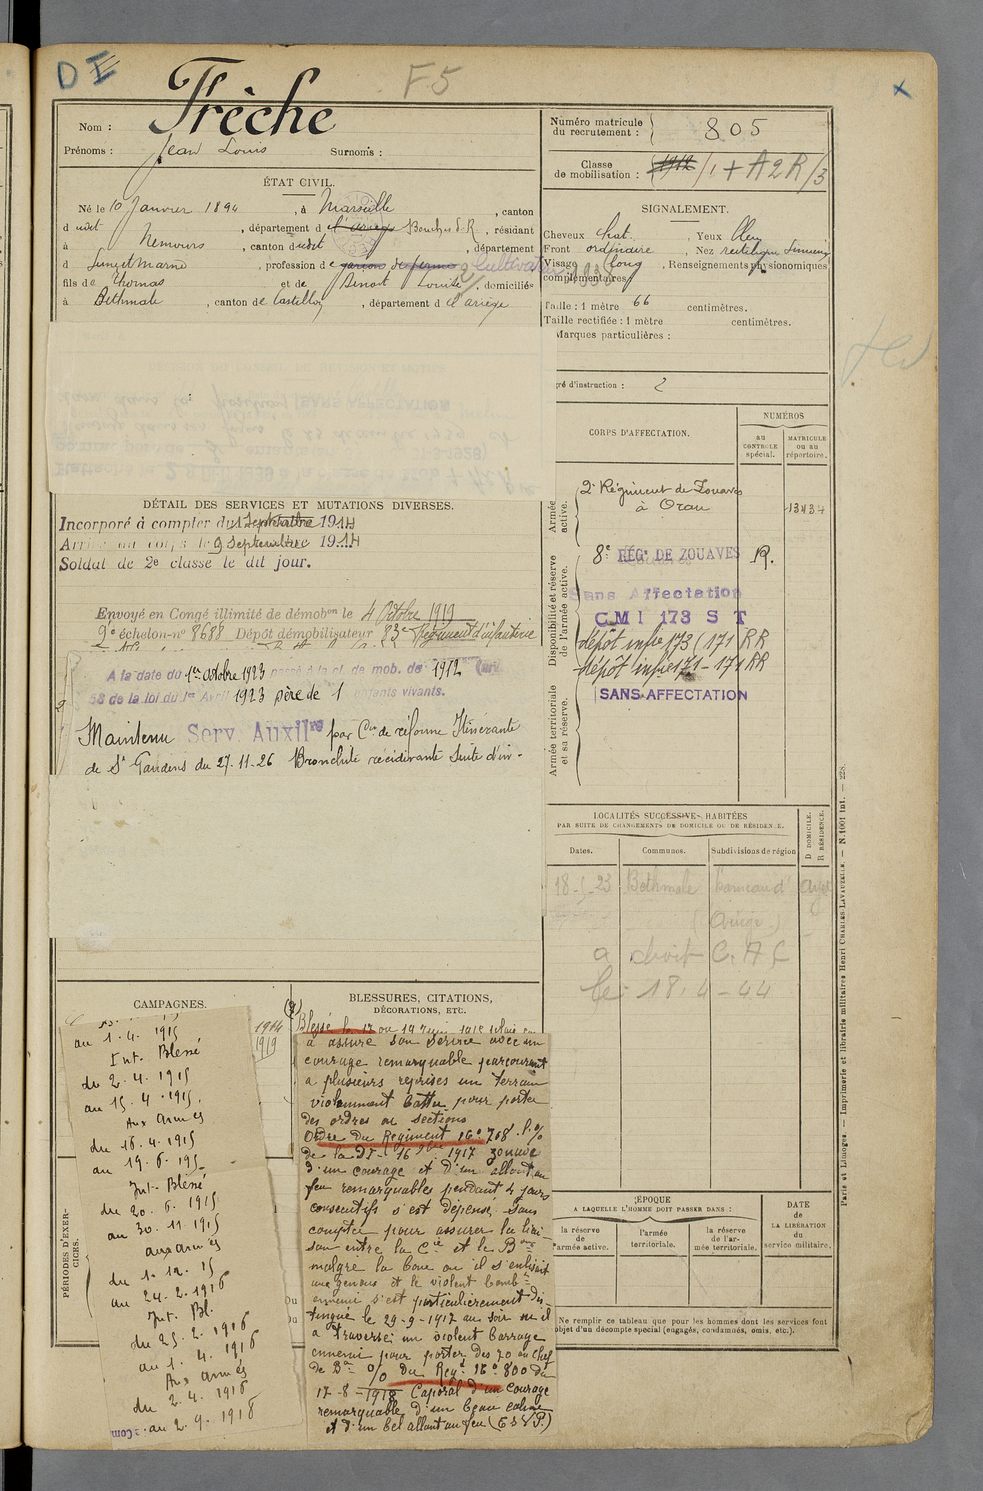 DE
F5
x
Nom : Frèche
Prénoms : Jean Louis Surnoms :
Numéro matricule du recrutement : 805
Classe de mobilisation : 1912 /1 + A2R/3
ÉTAT CIVIL.
Né le 10 Janvier 1894, à Marseille, canton
dudit, département de l'ariège Bouches d. R., résidant
à Nemours, canton dudit, département
d Seine et Marne, profession de garçon de ferme Cultivateur
fils de Thomas et de Benoit Louise, domiciliés
à Bethmale, canton de Castillon, département d l'ariège
SIGNALEMENT.
Cheveux chat., Yeux bleu
Front ordinaire, Nez rectiligne
Visage long, Renseignements physionomiques
complémentaires
Taille : 1 mètre 66 centimètres.
Taille rectifiée : 1 mètre centimètres.
Marques particulières :
gré d'instruction : 2
CORPS D'AFFECTATION.
NUMÉROS
au CONTROLE spécial.
MATRICULE ou au répertoire.
Armée active.
2e Régiment de Zouaves
à Oran
13434
Disponibilité et réserve de l'armée active.
8e RÉGt DE ZOUAVES R.
Sans Affectation
CMI 173 S T
dépôt infie 173 (171 RR
dépôt infie 171 - 171 RR
SANS AFFECTATION
Armée territoriale et sa réserve.
DÉTAIL DES SERVICES ET MUTATIONS DIVERSES.
Incorporé à compter du 1 Septembre 1914
Arrivé au corps le 9 Septembre 1914
Soldat de 2e classe le dit jour.
Envoyé en Congé illimité de démobon le 4 Octobre 1919
2e échelon no 8688 Dépôt démobilisateur 83e Régiment d'infanterie
A la date du 1er octobre 1923 passé à la cl. de mob. de 1912
58 de la loi du 1er Avril 1923 père de 1 enfants vivants.
Maintenu Serv. Auxilre par Con de réforme Itinérante
de St Gaudens du 27-11-26 Bronchite récidivante Suite d'in-
LOCALITÉS SUCCESSIVES HABITÉES
PAR SUITE DE CHANGEMENTS DE DOMICILE OU DE RÉSIDENCE.
Dates.
Communes.
Subdivisions de région
D DOMICILE.
R RÉSIDENCE.
18-5-23 Bethmale hameau d'Ayet
(Ariège)
a droit C. A C
le 18-4-44
CAMPAGNES.
1914
1919
au 1.4.1915
Int. Blessé
du 2.4.1915
au 15.4.1915.
Aux armées
du 16.4.1915
au 19.6.195_
Int. Blessé
du 20.6.1915
au 30.11.1915
aux armées
du 1.12.15
au 24.2.1916
Int. Bl.
du 25.2.1916
au 1.4.1916
Aux armées
du 2.4.1916
au 2.9.1918
PÉRIODES D'EXERCICES.
BLESSURES, CITATIONS,
DÉCORATIONS, ETC.
Blessé le 17 ou 19 Juin 1915
a assuré son service avec un
courage remarquable parcourant
a plusieurs reprises un terrain
violemment battu pour porter
des ordres au sections
Ordre du Regiment no 768
de la DI - 16 1917 zouave
d'un courage et d'un allant au
feu remarquables pendant 4 jours
consecutifs s'est dépensé sans
compter pour assurer la liai-
son entre la Cie et le Bon
malgré la boue ou il s'enlisait
aux genoux et le violent bombt
ennemi s'est particulièrement dis-
tingué le 29-9-1917 au soir ou il
a traversé un violent barrage
ennemi pour porter des au chef
de Bon O/o du Regt no 800 du
17-8-1918 Caporal d'un courage
remarquable d'un beau calme
et d'un bel allant au feu
ÉPOQUE
A LAQUELLE L'HOMME DOIT PASSER DANS :
la réserve de l'armée active.
l'armée territoriale.
la réserve de l'armée territoriale.
DATE de LA LIBÉRATION du service militaire.
Ne remplir ce tableau que pour les hommes dont les services font
objet d'un décompte spécial (engagés, condamnés, omis, etc.).
Paris et Limoges. — Imprimerie et librairie militaires Henri CHARLES-LAVAUZELLE. — N. 1001 int. — 228.